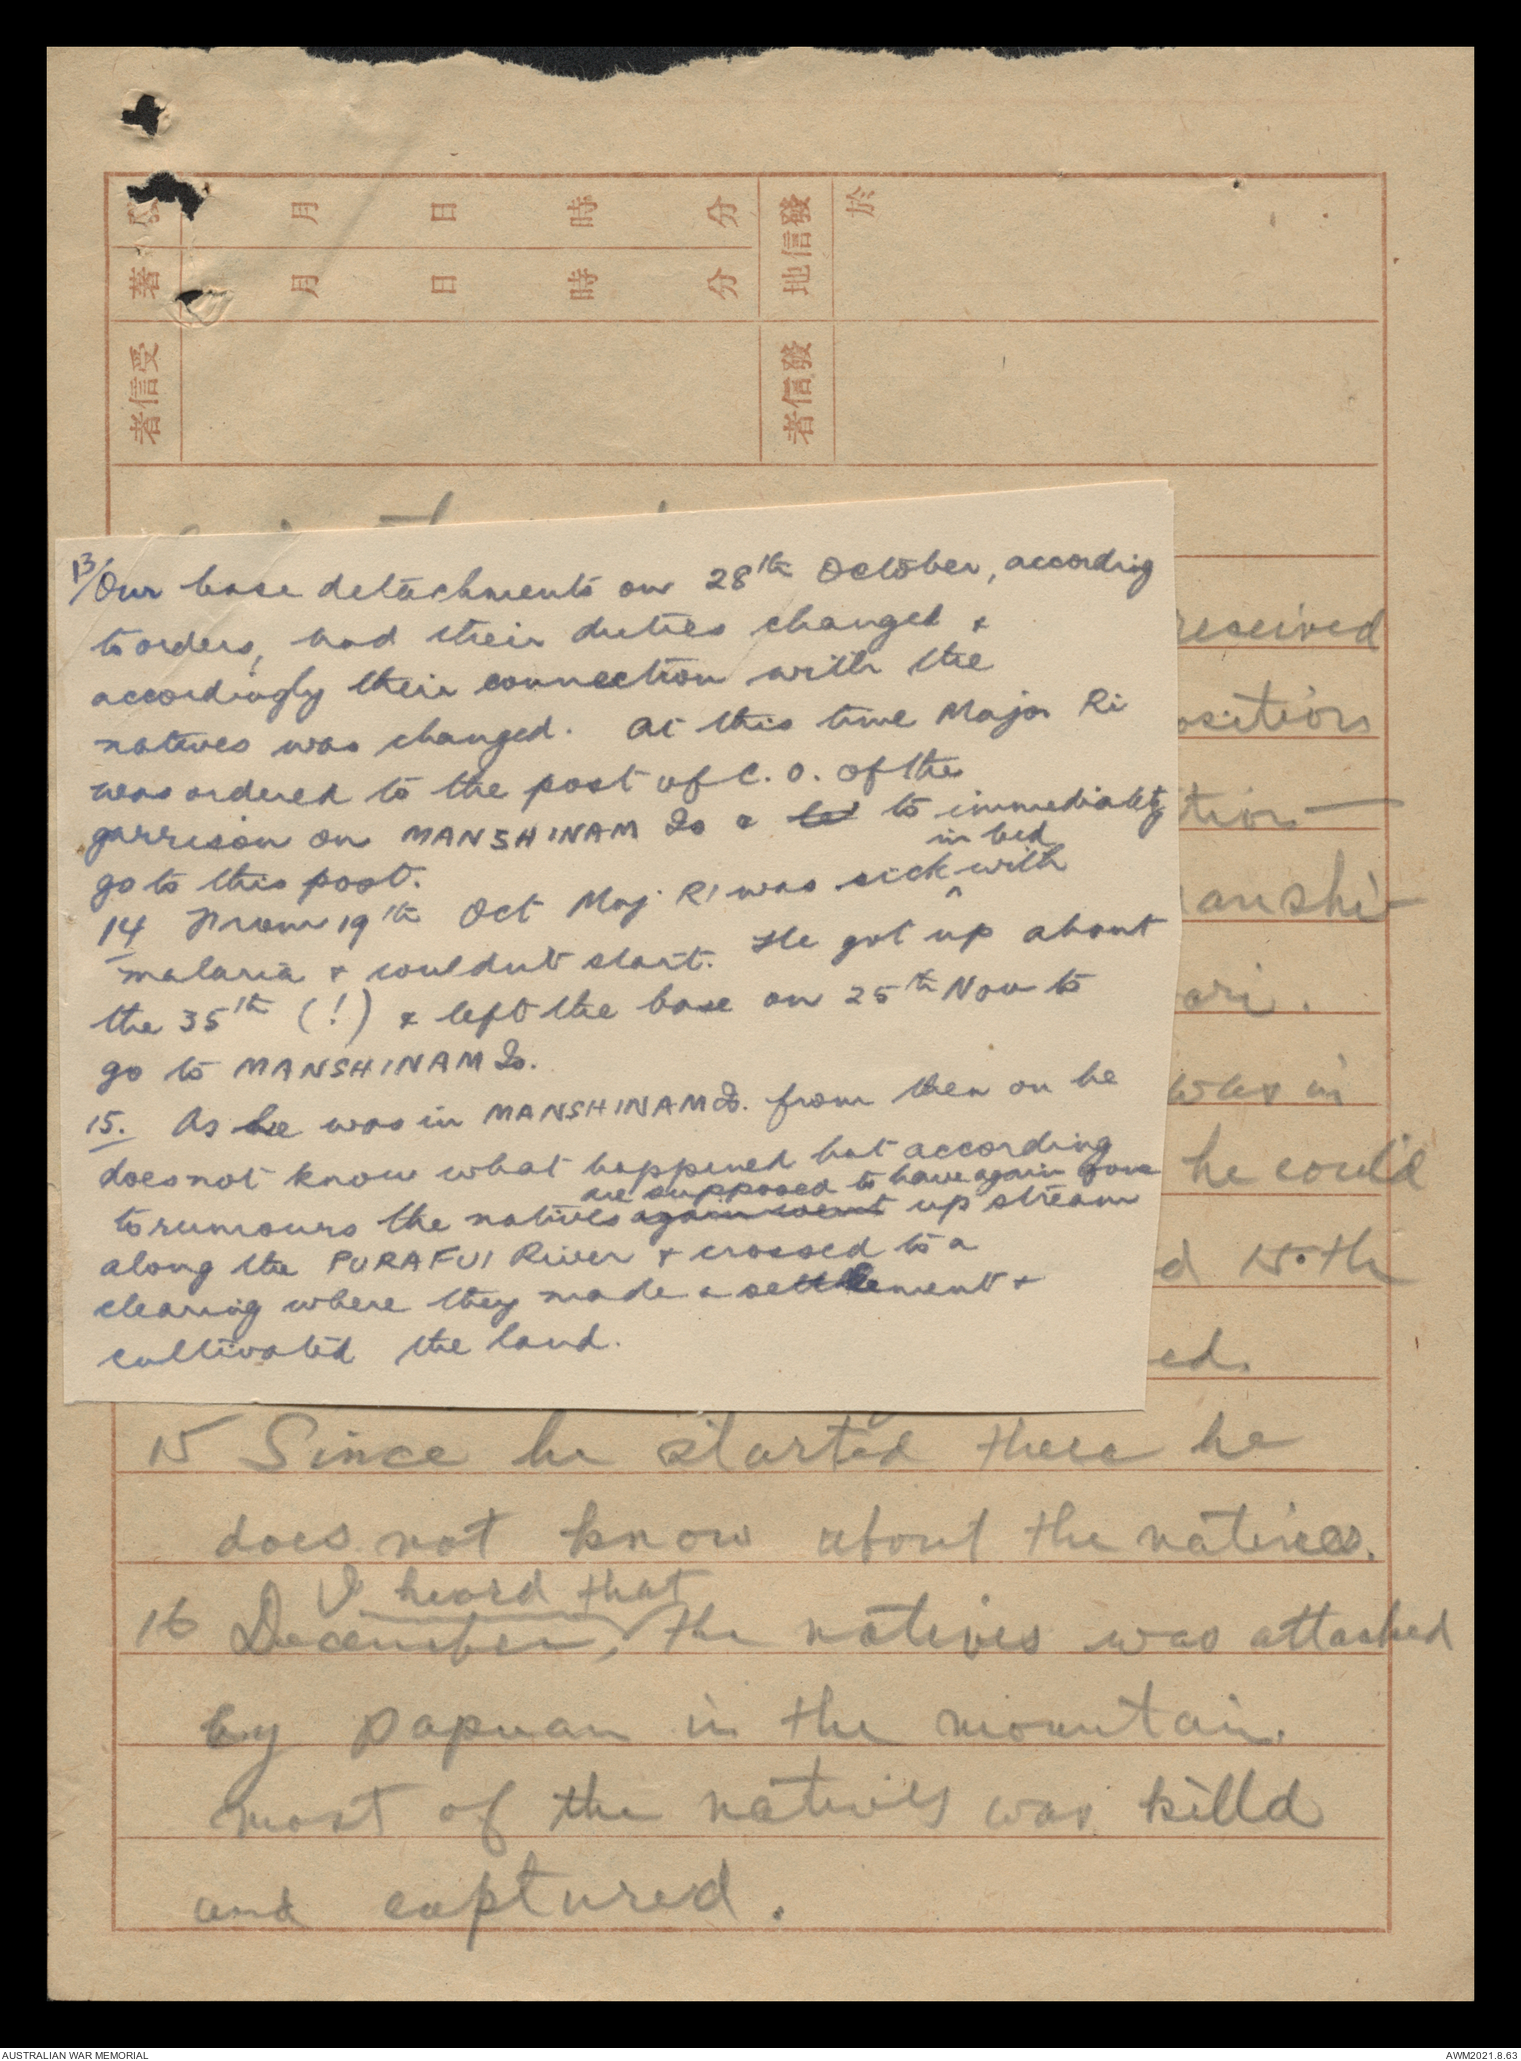 發 月 日 時 分 地信發 於
著 月 日 時 分
者信受 者信發
13/ Our base detachments on 28th October, according
to orders, had their duties changed &
accordingly their connection with the
natives was changed. At this time Major Ri
was ordered to the post of C.O. of the
garrison on MANSHINAM Is & to to immediately
go to this post.
14 From 19th Oct Maj. RI was sick ^ in bed with
malaria & couldn't start. He got up about
the 35th (!) & left the base on 25th Nov to
go to MANSHINAM Is.
15. As he was in MANSHINAM Is. from then on he
does not know what happened but according
are supposed to have again gone
to rumours the natives again went up stream
along the PURAFUI River & crossed to a
clearing where they made a settlement &
cultivated the land.
received
osition
tion
anshi-
ari.
was in
he could
d 15.th
ed.
15 Since he started there he
does not know about the natives.
I heard that
16 December, the natives was attacked
by papuan in the mountain.
most of the natives was killd
and captured.
AUSTRALIAN WAR MEMORIAL
AWM2021.8.63